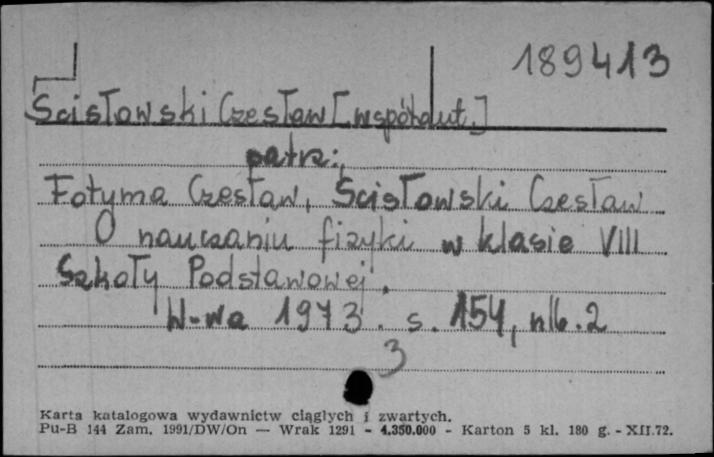 189413
Ścisłowski Czesław [współaut.]
patrz:
Fotyma Czesław, Ścisłowski Czesław
O nauczaniu fizyki w klasie VIII
Szkoły Podstawowej.
W-wa 1973. s. 154, nlb. 2
3
Karta katalogowa wydawnictw ciągłych i zwartych.
Pu-B 144 Zam. 1991/DW/On — Wrak 1291 - 4.350.000 - Karton 5 kl. 180 g. - XII.72.